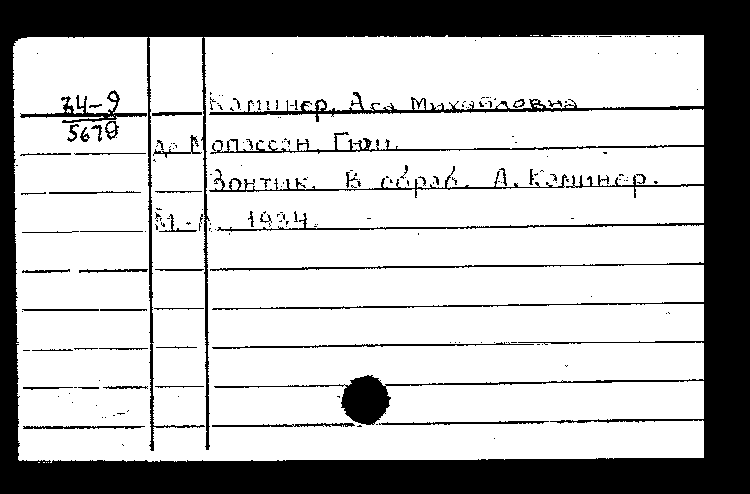 34-9
5670
Каминер, Ася Михайловна
де Мопассан, Гюи.
Зонтик. В обраб. А. Каминер.
М.-Л., 1934.